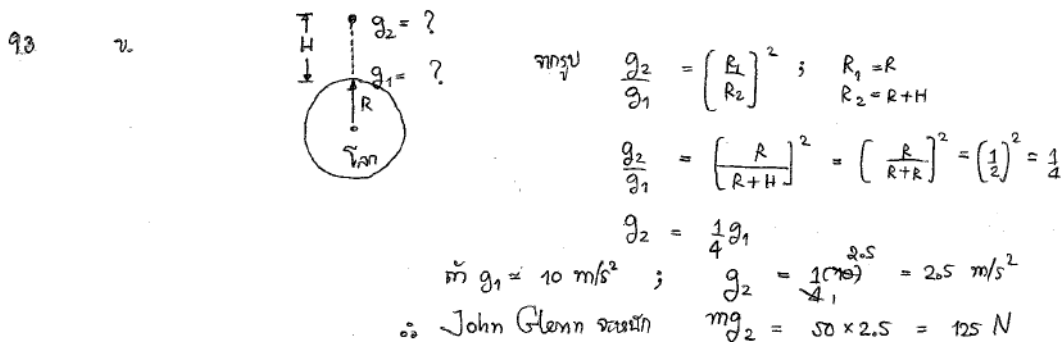 93 ข.
g₂ = ?
H
g₁ = ?
R
โลก
จากรูป g₂/g₁ = (R₁/R₂)² ; R₁ = R
R₂ = R+H
g₂/g₁ = [R/(R+H)]² = (R/(R+R))² = (1/2)² = 1/4
g₂ = 1/4 g₁
ถ้า g₁ ≃ 10 m/s² ; g₂ = 1/4 (10) 2.5 1 = 2.5 m/s²
∴ John Glenn จะหนัก mg₂ = 50 × 2.5 = 125 N